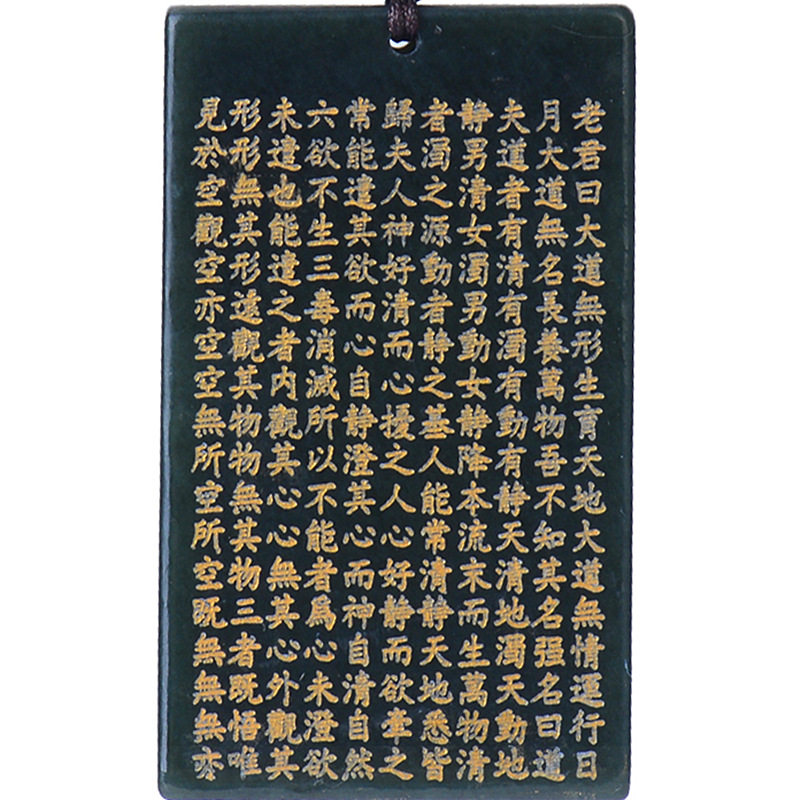 老君曰大道無形生育天地大道無情運行日
月大道無名長養萬物吾不知其名强名曰道
夫道者有清有濁有動有静天清地濁天動地
静男清女濁男動女静降本流末而生萬物清
者濁之源動者静之基人能常清静天地悉皆
歸夫人神好清而心擾之人心好静而欲牽之
常能遣其欲而心自静澄其心而神自清自然
六欲不生三毒消滅所以不能者爲心未澄欲
未遣也能遣之者内觀其心心無其心外觀其
形形無其形遠觀其物物無其物三者既悟唯
見於空觀空亦空空無所空所空既無無無亦